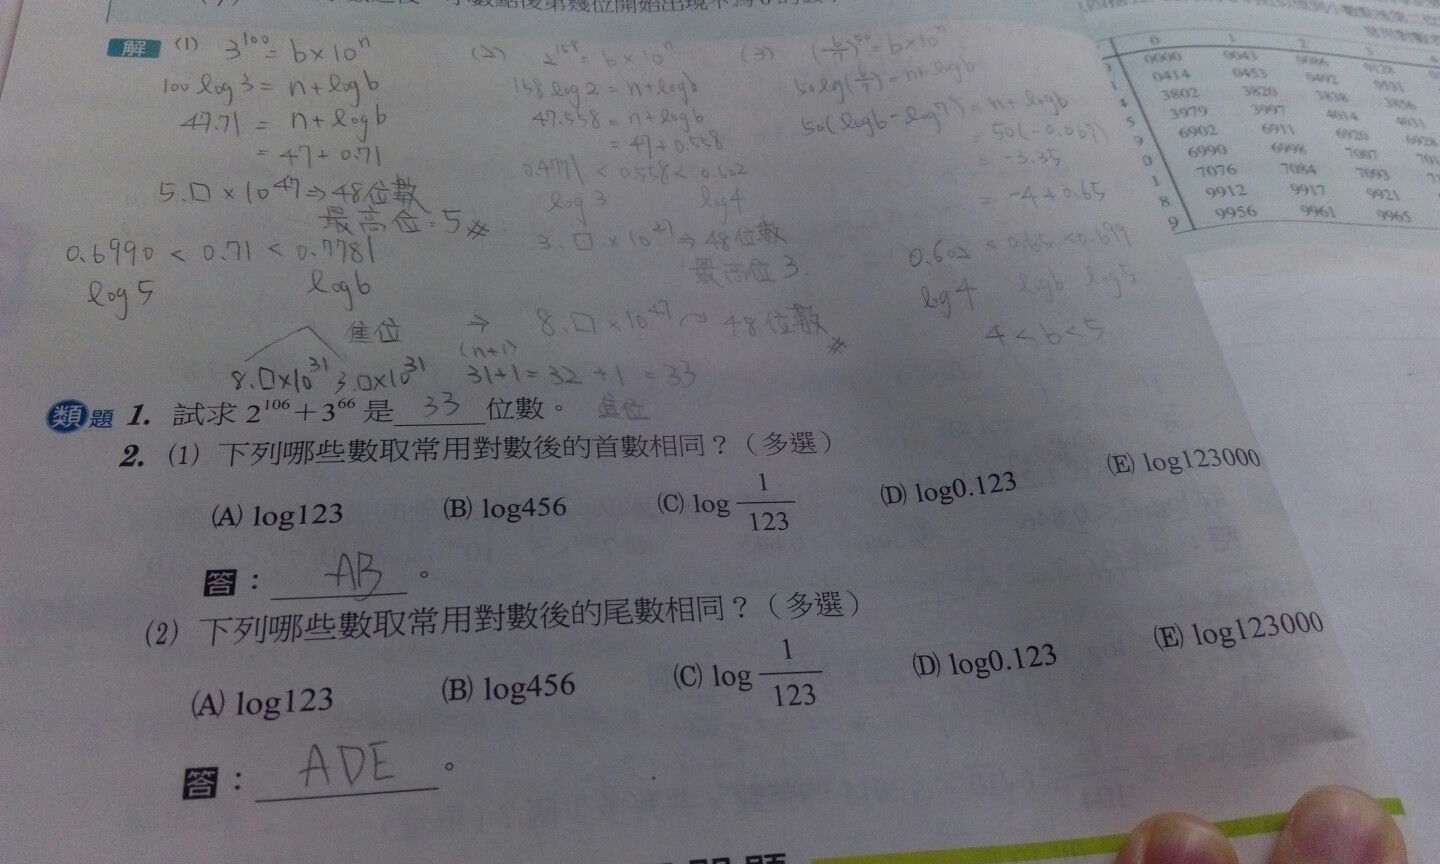 解 (1) 3^100 = b×10^n (2) 2^158 = b×10^n (3) (6/7)^50 = b×10^n
100 log 3 = n+log b 158 log 2 = n+log b 50 log(6/7) = n+log b
47.71 = n+log b 47.558 = n+log b 50(log6-log7) = n+log b
= 47+0.71 = 47+0.558 = 50(-0.067)
0.4771 < 0.558 < 0.602 = -3.35
5.□×10^47 ⇒ 48位數 log 3 log 4 = -4+0.65
最高位=5 # 3.□×10^47 ⇒ 48位數
0.6990 < 0.71 < 0.7781 最高位 3. 0.602 < 0.65 < 0.699
log 5 log 6 log 4 log b log 5
進位 ⇒ 8.□×10^47 ~> 48位數 # 4 < b < 5
8.□×10^31 3.□×10^31 (n+1) 31+1 = 32 +1 = 33
類題 1. 試求 2^106+3^66 是 33 位數。 進位
2. (1) 下列哪些數取常用對數後的首數相同？（多選）
(A) log123 (B) log456 (C) log 1/123 (D) log0.123 (E) log123000
答：AB。
(2) 下列哪些數取常用對數後的尾數相同？（多選）
(A) log123 (B) log456 (C) log 1/123 (D) log0.123 (E) log123000
答：ADE。
0 1 2 3 4
0000 0043 0086 0128
0414 0453 0492 0531
3802 3820 3838 3856
3979 3997 4014 4031
6902 6911 6920 6928
6990 6998 7007
7076 7084 7093
9912 9917 9921
9956 9961 9965